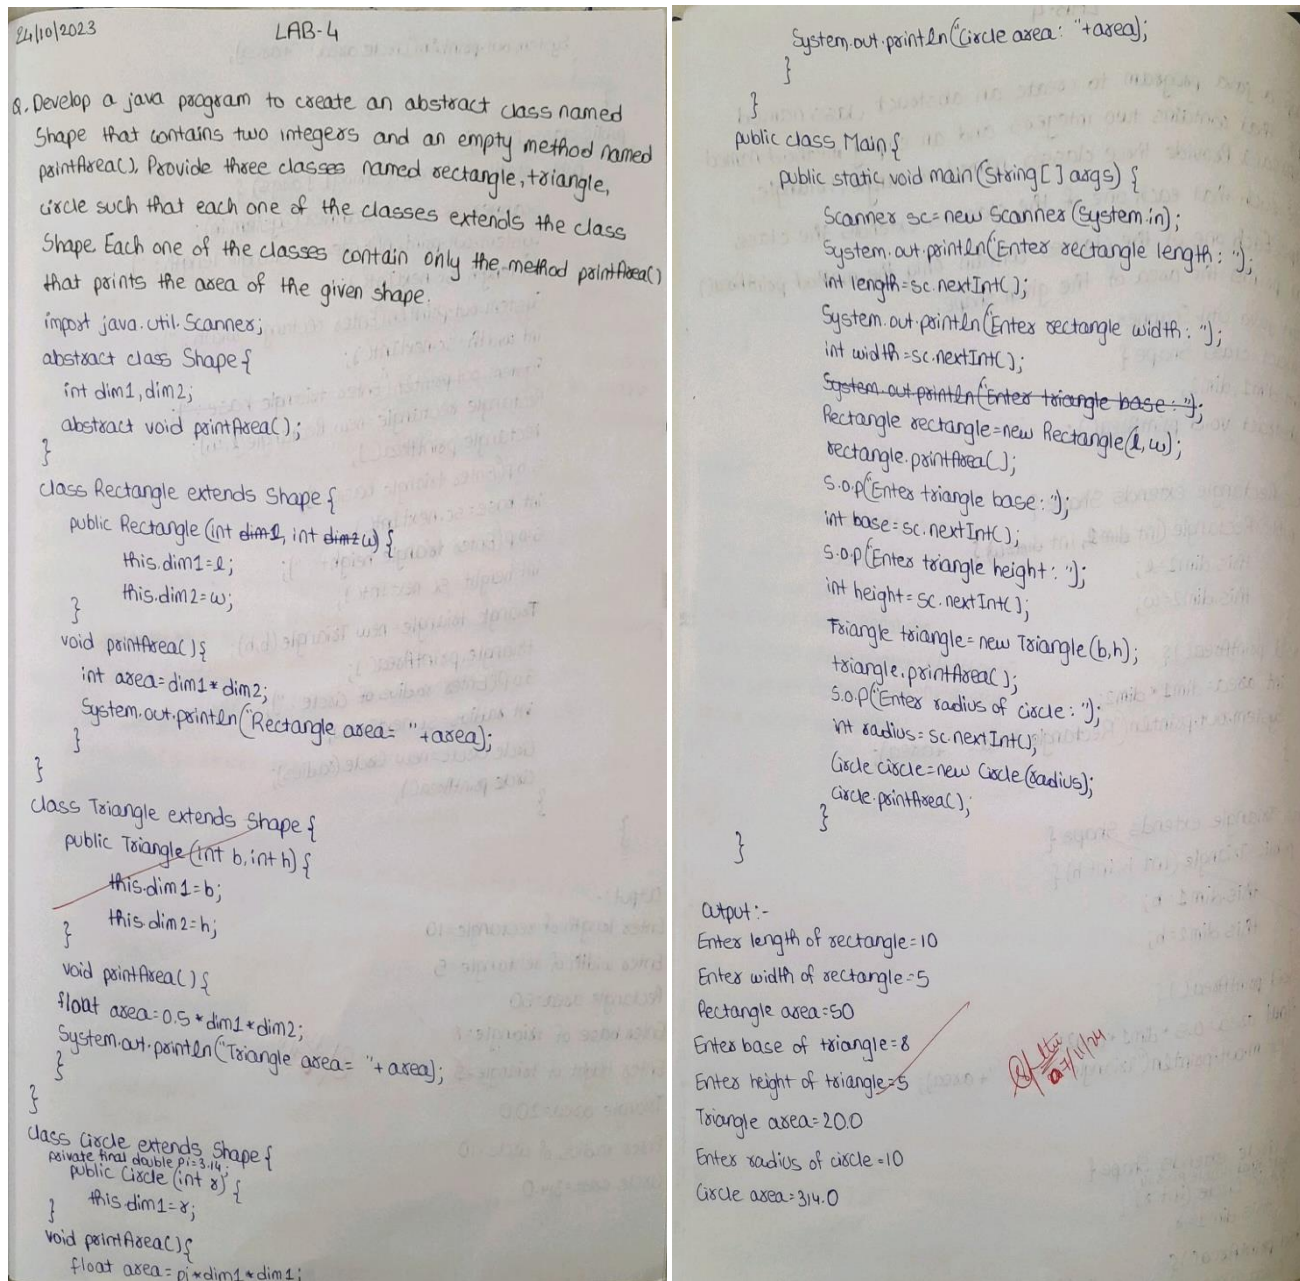 24/10/2023
LAB-4
Q. Develop a java program to create an abstract class named
Shape that contains two integers and an empty method named
printArea(). Provide three classes named rectangle, triangle,
circle such that each one of the classes extends the class
Shape. Each one of the classes contain only the method printArea()
that prints the area of the given shape.
import java.util.Scanner;
abstract class Shape {
int dim1, dim2;
abstract void printArea();
}
class Rectangle extends Shape {
public Rectangle (int dim1 l, int dim2 w) {
this.dim1=l;
this.dim2=w;
}
void printArea(){
int area=dim1*dim2;
System.out.println("Rectangle area= "+area);
}
}
class Triangle extends Shape {
public Triangle (int b, int h) {
this.dim1=b;
this.dim2=h;
}
void printArea(){
float area=0.5*dim1*dim2;
System.out.println("Triangle area= "+area);
}
}
class Circle extends Shape {
private final double pi=3.14;
public Circle (int r) {
this.dim1=r;
}
void printArea(){
float area=pi*dim1*dim1;
System.out.println("Circle area: "+area);
}
}
public class Main {
public static void main (String[] args) {
Scanner sc=new Scanner(System.in);
System.out.println("Enter rectangle length: ");
int length=sc.nextInt();
System.out.println("Enter rectangle width: ");
int width=sc.nextInt();
System.out.println("Enter triangle base: ");
Rectangle rectangle=new Rectangle(l,w);
rectangle.printArea();
S.o.p("Enter triangle base: ");
int base=sc.nextInt();
S.o.p("Enter triangle height: ");
int height=sc.nextInt();
Triangle triangle=new Triangle(b,h);
triangle.printArea();
S.o.p("Enter radius of circle: ");
int radius=sc.nextInt();
Circle circle=new Circle(radius);
circle.printArea();
}
}
Output:-
Enter length of rectangle=10
Enter width of rectangle=5
Rectangle area=50
Enter base of triangle=8
Enter height of triangle=5
Triangle area=20.0
Enter radius of circle=10
Circle area=314.0